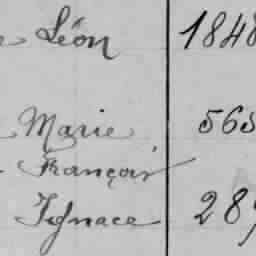 Léon 1848
Marie 565
François
Ignace 289